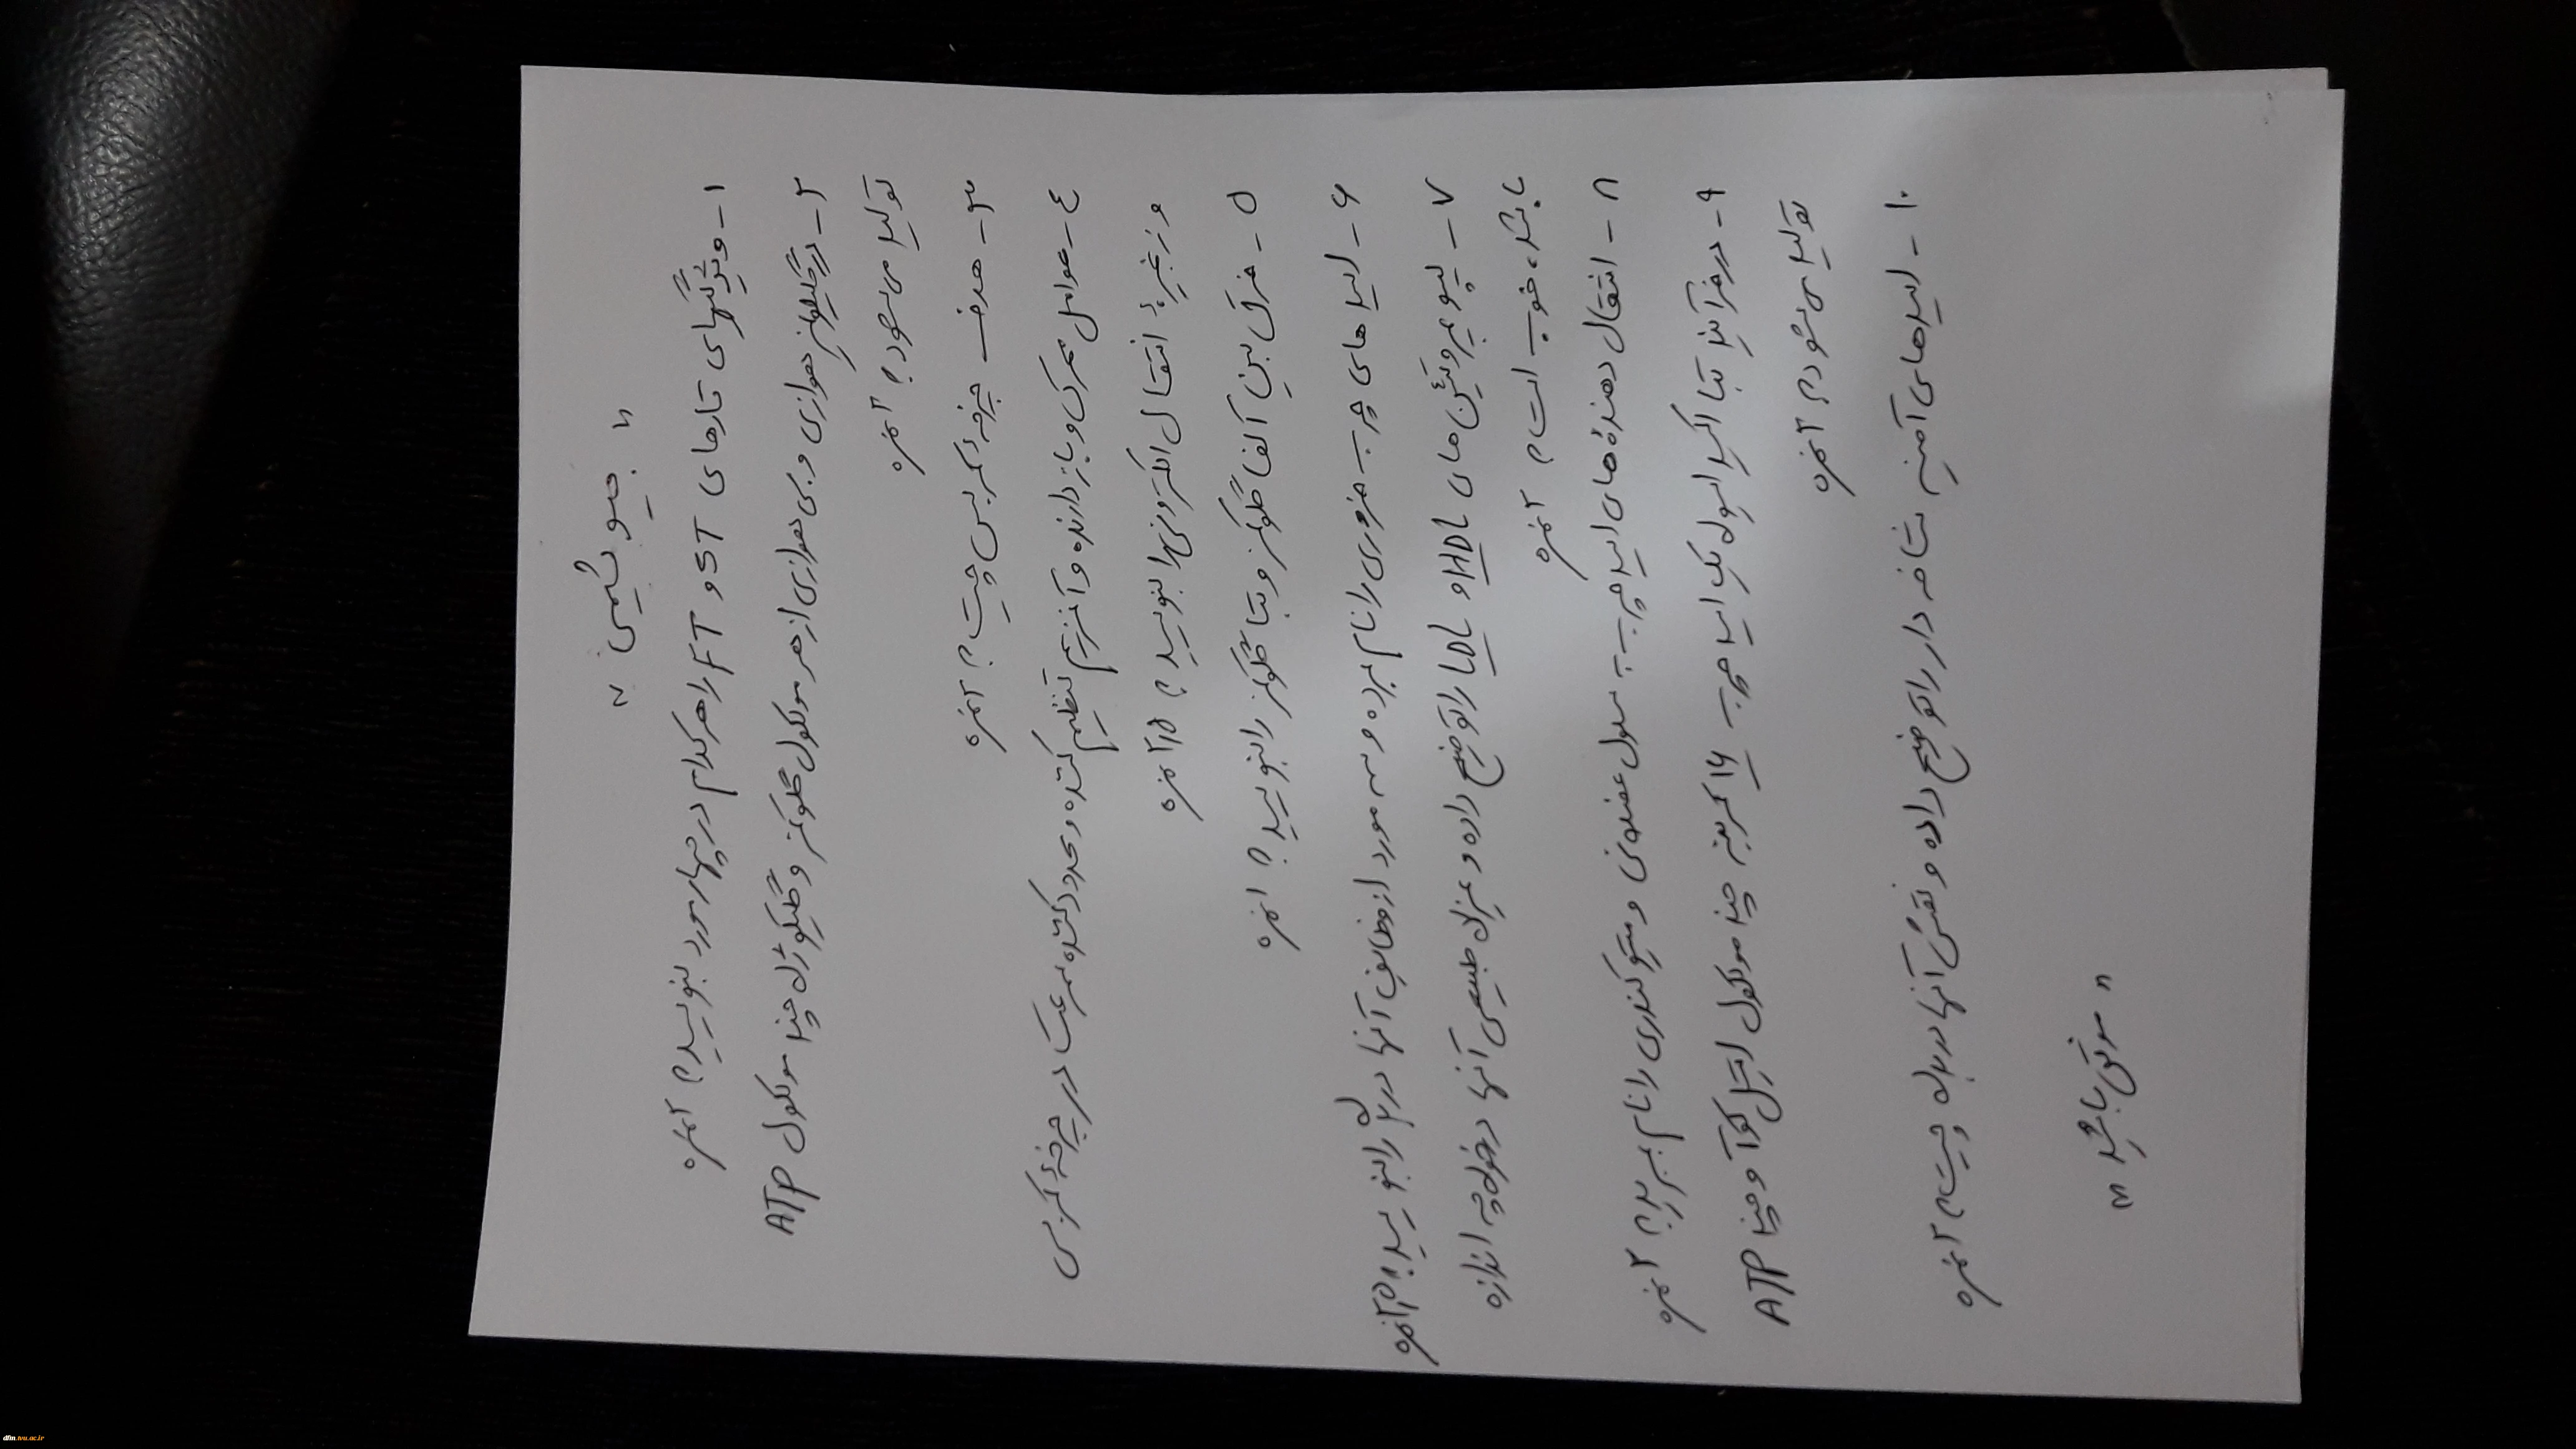 " بیوشیمی "
۱- ویژگیهای تارهای ST و FT را هر کدام در چهار مورد بنویسید؟ ۲ نمره
۲- در گلیکولیز هوازی و بی هوازی از هر مولکول گلوکز و گلیکوژن چند مولکول ATP
تولید می‌شود؟ ۲ نمره
۳- هدف چرخهٔ کربس چیست؟ ۲ نمره
٤- عوامل محرک و بازدارنده و آنزیم تنظیم کننده و محدود کننده سرعت در چرخهٔ کربس
و زنجیرهٔ انتقال الکترونی را بنویسید؟ ۲/۵ نمره
۵- فرق بین آلفا گلوکز و بتا گلوکز را بنویسید؟ ۱ نمره
۶- اسیدهای چرب ضروری را نام برده و سه مورد از وظایف آنها در بدن را بنویسید؟ ۲/۵ نمره
۷- لیپوپروتئین های HDL و LDL را توضیح داده و میزان طبیعی آنها در خون چه اندازه
باشد، خوب است؟ ۲ نمره
۸- انتقال دهنده‌های اسید چرب به سلول عضلانی و میتوکندری را نام ببرید؟ ۲ نمره
۹- در فرآیند بتا اکسیداسیون یک اسید چرب ۱۶ کربنه چند مولکول استیل کوآ و چند ATP
تولید می‌شود؟ ۲ نمره
۱۰- اسیدهای آمینه شاخه دار را توضیح داده و نقش آنها در بدن چیست؟ ۲ نمره
" موفق باشید "
dfm.tvu.ac.ir